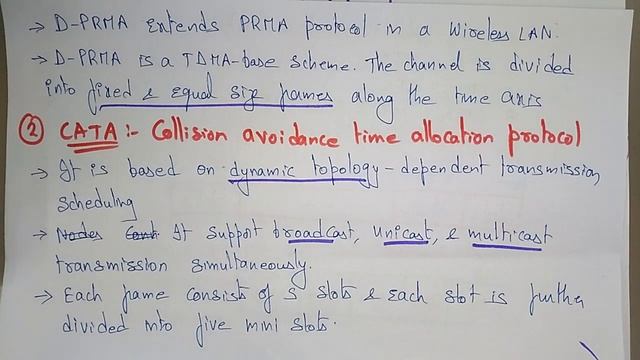 → D-PRMA Extends PRMA protocol in a wireless LAN.
→ D-PRMA is a TDMA-base scheme. The channel is divided
into fixed & equal size frames along the time axis
② CATA :- Collision avoidance time allocation protocol
→ It is based on dynamic topology - dependent transmission
scheduling
→ Nodes It support broadcast, unicast, & multicast
transmission simultaneously.
→ Each frame consists of S slots & Each slot is further
divided into five mini slots.